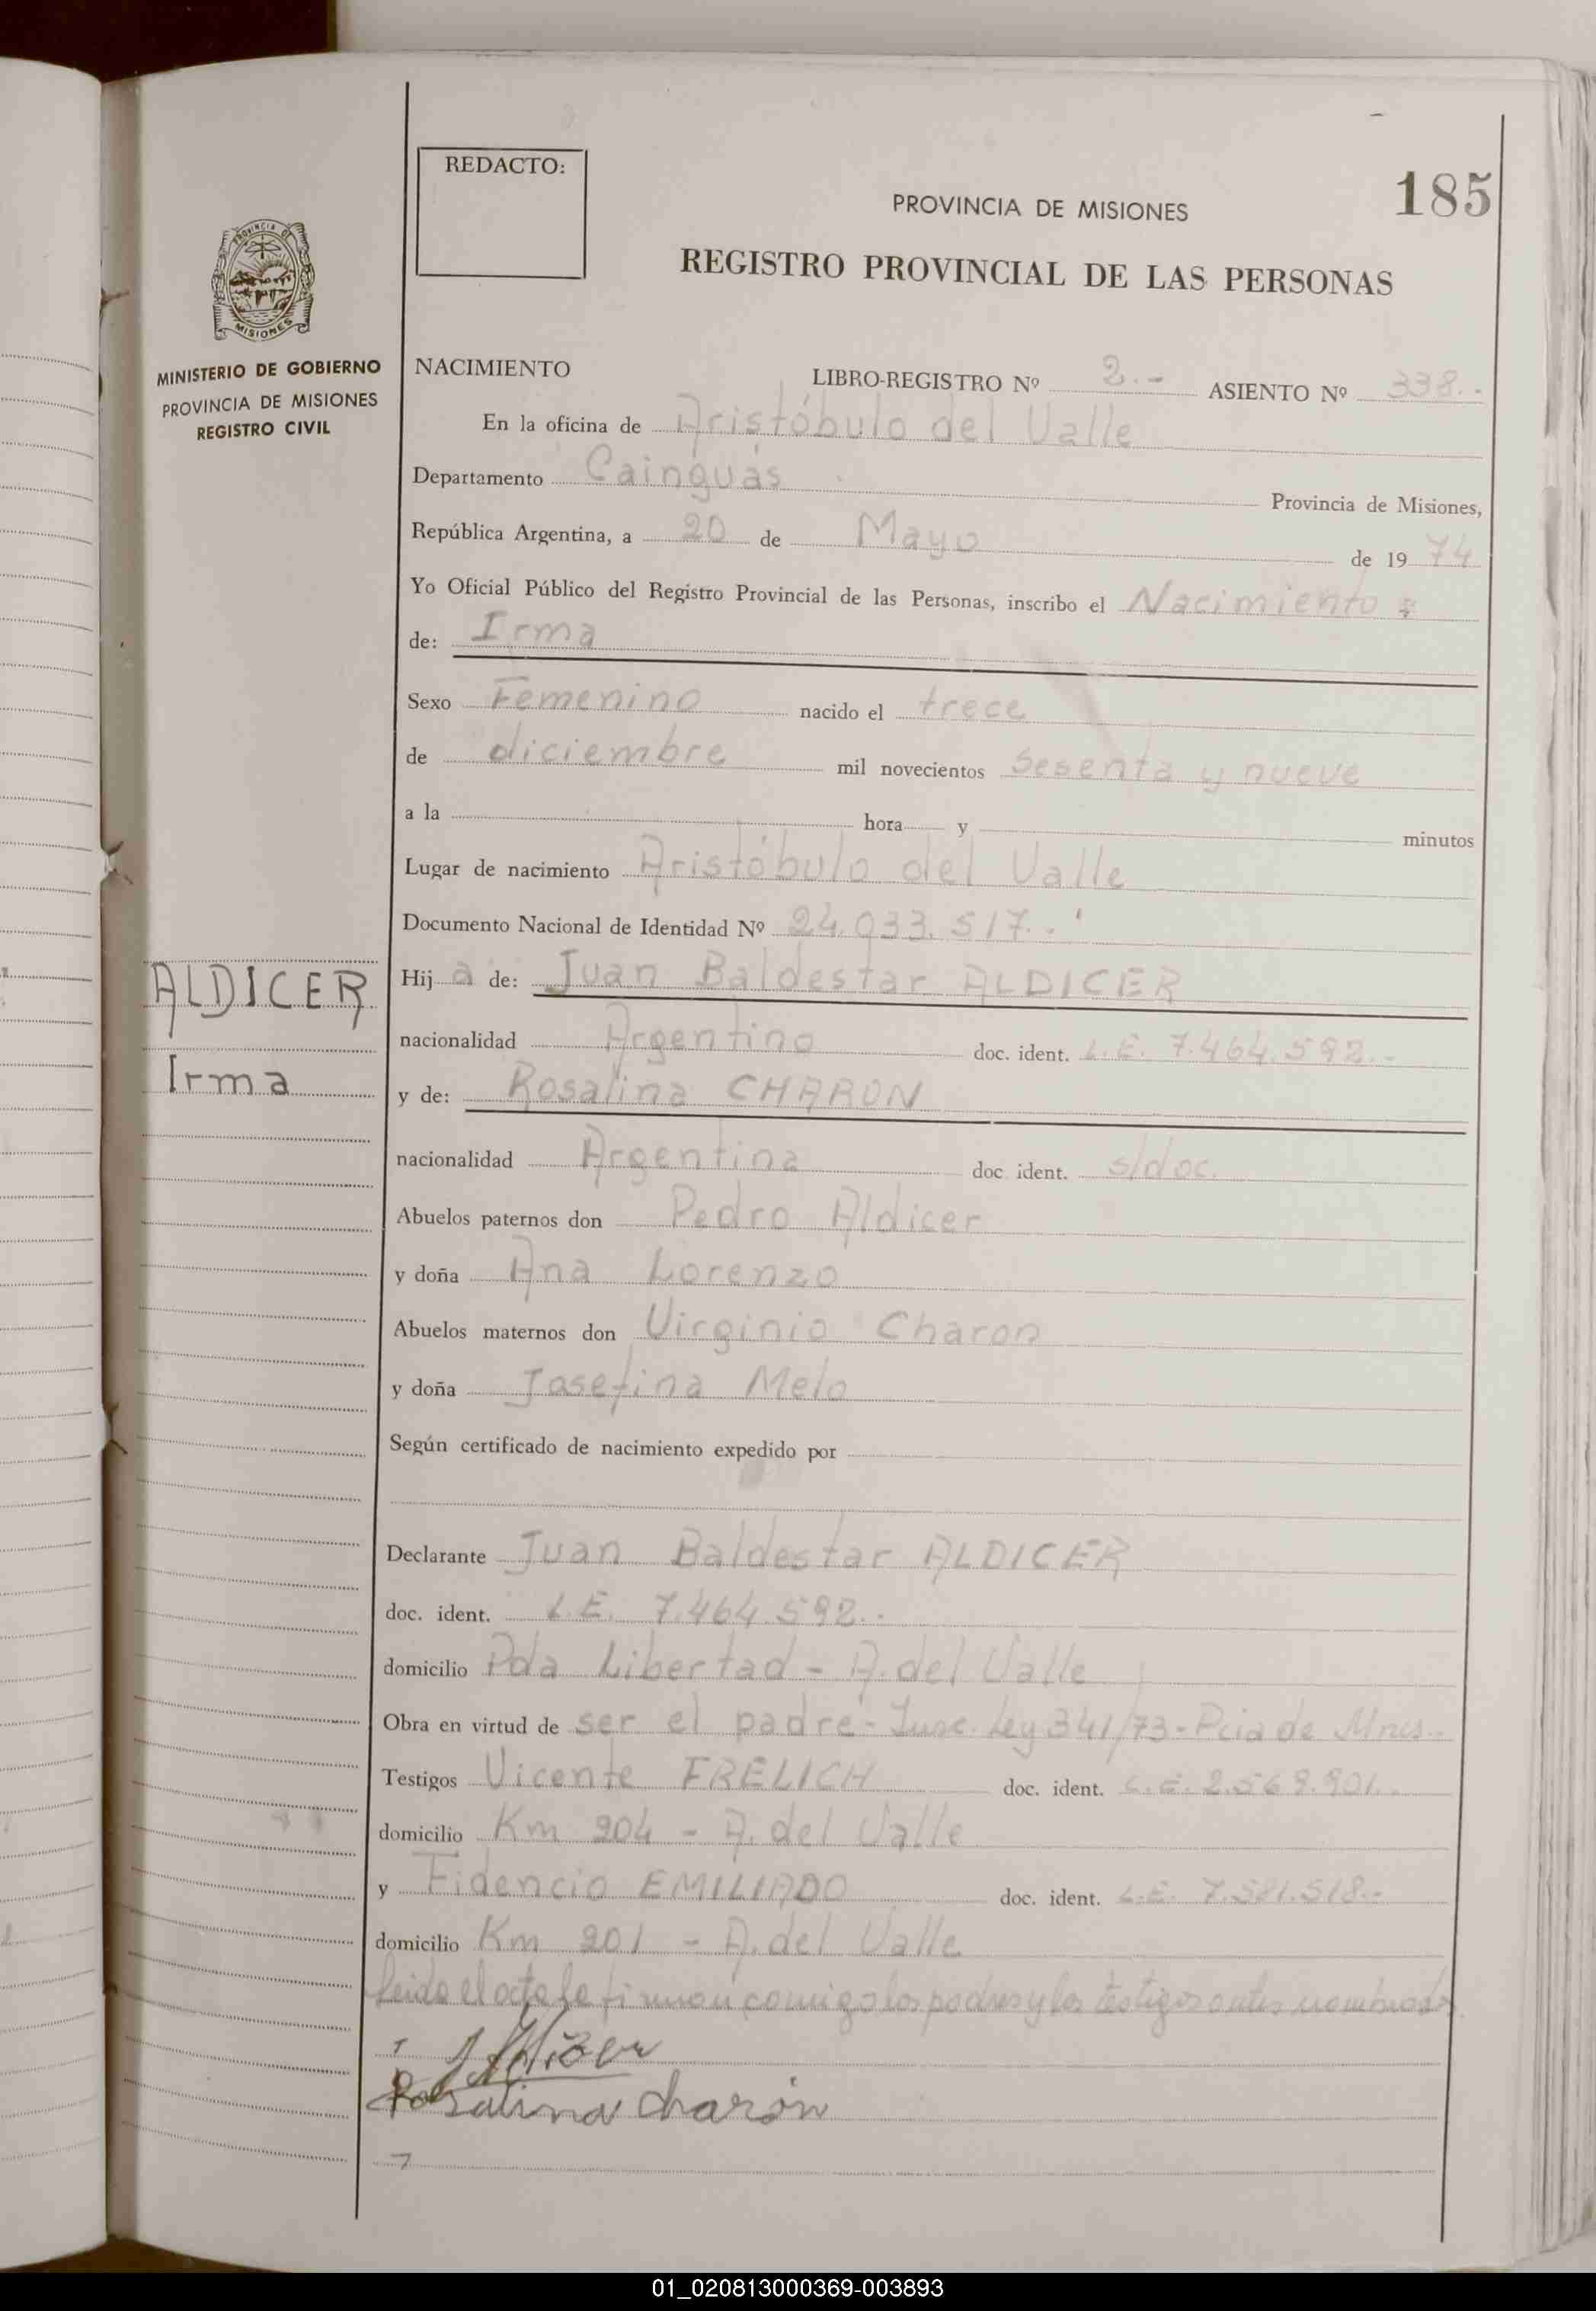 REDACTO:
185
PROVINCIA DE MISIONES
REGISTRO PROVINCIAL DE LAS PERSONAS
PROVINCIA DE
MISIONES
MINISTERIO DE GOBIERNO
PROVINCIA DE MISIONES
REGISTRO CIVIL
NACIMIENTO LIBRO-REGISTRO Nº 2.- ASIENTO Nº 338.-
En la oficina de Aristóbulo del Valle
Departamento Cainguás Provincia de Misiones,
República Argentina, a 20 de Mayo de 1974
Yo Oficial Público del Registro Provincial de las Personas, inscribo el Nacimiento
de: Irma
Sexo Femenino nacido el trece
de diciembre mil novecientos sesenta y nueve
a la hora y minutos
Lugar de nacimiento Aristóbulo del Valle
Documento Nacional de Identidad Nº 24.033.517.-
ALDICER
Irma
Hija de: Juan Baldestar ALDICER
nacionalidad Argentino doc. ident. L.E. 7.464.592.-
y de: Rosalina CHARON
nacionalidad Argentina doc ident. s/doc.
Abuelos paternos don Pedro Aldicer
y doña Ana Lorenzo
Abuelos maternos don Virginio Charon
y doña Josefina Melo
Según certificado de nacimiento expedido por
Declarante Juan Baldestar ALDICER
doc. ident. L.E. 7.464.592.-
domicilio Pda Libertad - A. del Valle
Obra en virtud de ser el padre - Insc. Ley 341/73 - Pcia de Mnes.-
Testigos Vicente FRELICH doc. ident. L.E. 2.569.901.-
domicilio Km 204 - A. del Valle
y Fidencio EMILIADO doc. ident. L.E. 7.581.518.-
domicilio Km 201 - A. del Valle
Leida el acta la firman conmigo los padres y los testigos antes nombrados
Rosalina charón
01_020813000369-003893